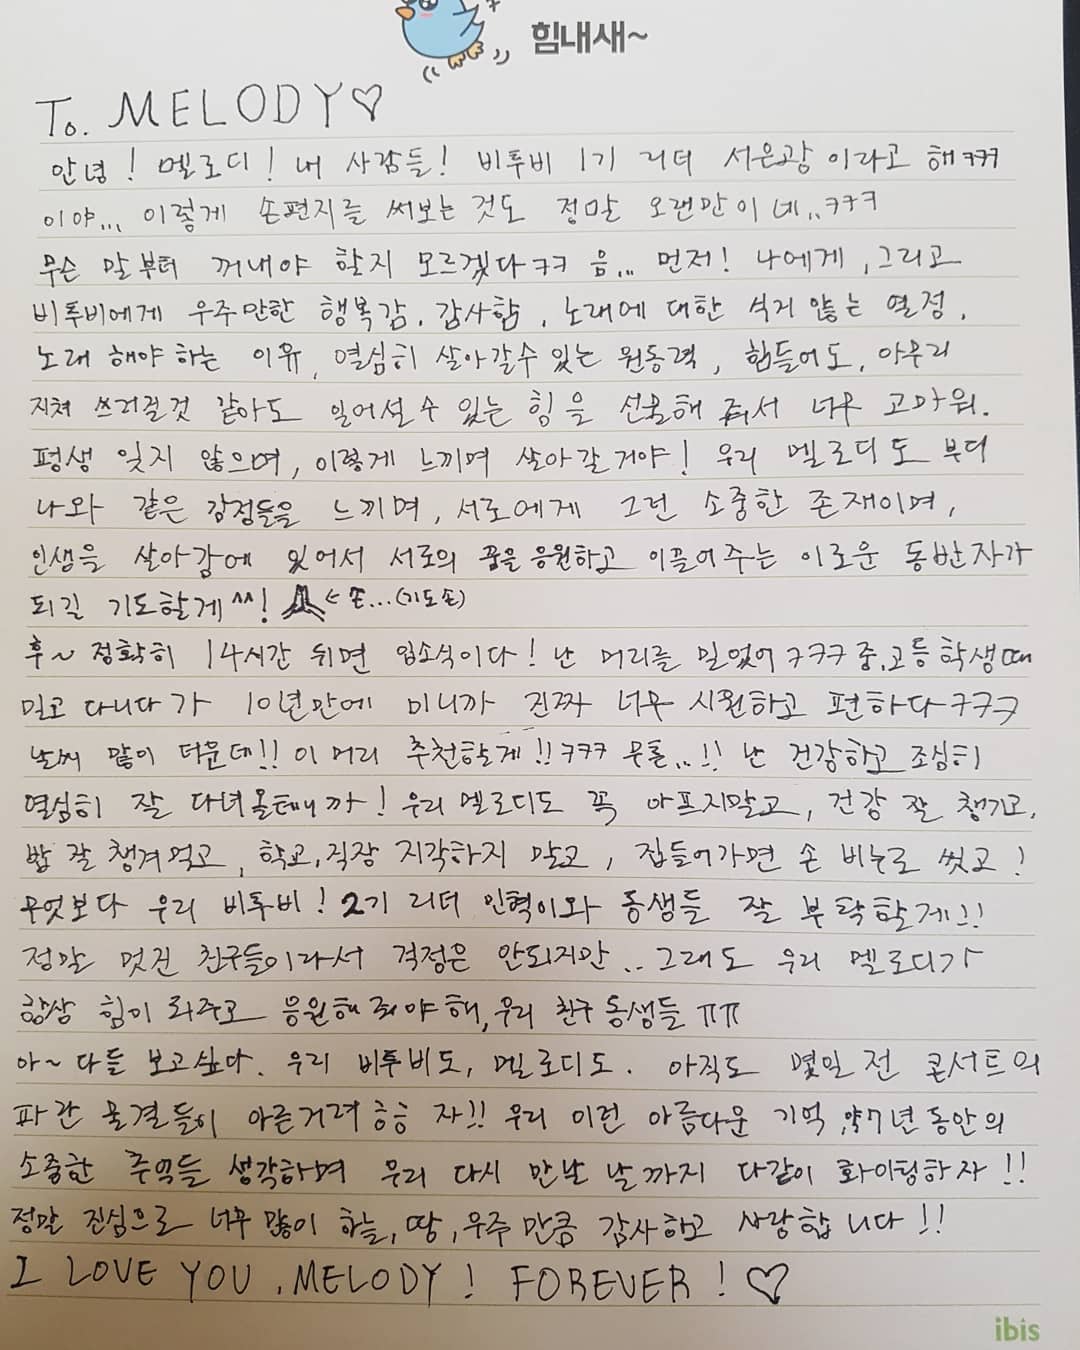 힘내새~
To. MELODY♡
안녕! 멜로디! 내 사람들! 비투비 1기 리더 서은광이라고 해ㅋㅋㅋ
이야... 이렇게 손편지를 써보는 것도 정말 오랜만이네..ㅋㅋㅋ
무슨 말부터 꺼내야 할지 모르겠다ㅋㅋ 음... 먼저! 나에게, 그리고
비투비에게 우주만한 행복감, 감사함, 노래에 대한 식지 않는 열정,
노래 해야 하는 이유, 열심히 살아갈수 있는 원동력, 힘들어도, 아무리
지쳐 쓰러질것 같아도 일어설 수 있는 힘을 선물해 줘서 너무 고마워.
평생 잊지 않으며, 이렇게 느끼며 살아갈거야! 우리 멜로디도 부디
나와 같은 감정들을 느끼며, 서로에게 그런 소중한 존재이며,
인생을 살아감에 있어서 서로의 꿈을 응원하고 이끌어주는 이로운 동반자가
되길 기도할게^^! ← 손...(기도손)
후~ 정확히 14시간 뒤면 입소식이다! 난 머리를 밀었어 ㅋㅋㅋ 중,고등학생때
밀고 다니다가 10년만에 미니까 진짜 너무 시원하고 편하다ㅋㅋㅋ
날씨 많이 더운데!! 이 머리 추천할게!! ㅋㅋㅋ 무튼..!! 난 건강하고 조심히
열심히 잘 다녀올테니까! 우리 멜로디도 꼭 아프지말고, 건강 잘 챙기고,
밥 잘 챙겨먹고, 학교,직장 지각하지 말고, 집들어가면 손 비누로 씻고!
무엇보다 우리 비투비! 2기 리더 민혁이와 동생들 잘 부탁할게!!
정말 멋진 친구들이라서 걱정은 안되지만.. 그래도 우리 멜로디가
항상 힘이 돼주고 응원해 줘야 해, 우리 친구 동생들 ㅠㅠ
아~ 다들 보고싶다. 우리 비투비도, 멜로디도. 아직도 몇일 전 콘서트의
파란 물결들이 아른거려 흐흐 자!! 우리 이런 아름다운 기억, 약7년 동안의
소중한 추억들 생각하며 우리 다시 만날 날까지 다같이 화이팅하자!!
정말 진심으로 너무 많이 하늘,땅,우주만큼 감사하고 사랑합니다!!
I LOVE YOU, MELODY! FOREVER! ♡
ibis